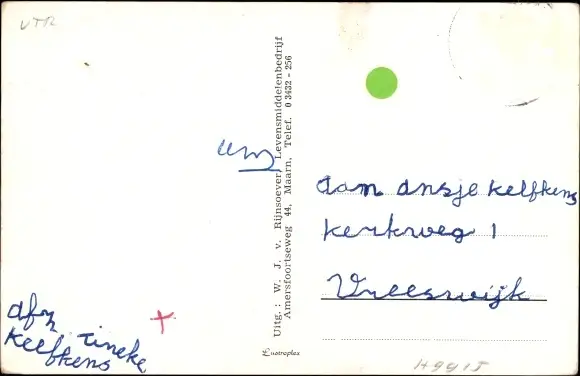 VTR
Uitg.: W. J. v. Rijnsoever, Levensmiddelenbedrijf
Amersfoortseweg 44, Maarn, Telef. 0 3432 - 256
aan ansje kelfkens
kerkweg 1
Vreeswijk
afz tineke
kelfkens
Lustroplex